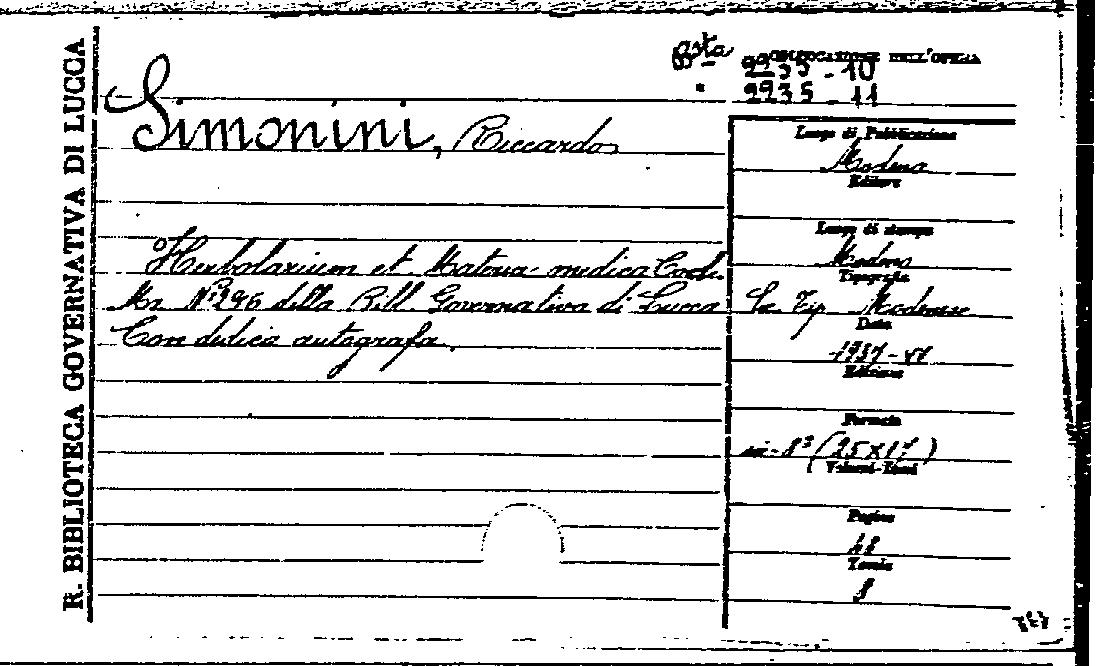 R. BIBLIOTECA GOVERNATIVA DI LUCCA
Busta 2235 - 10
" 2235 - 11
COLLOCAZIONE DELL'OPERA
Simonini, Riccardo
Herbolarium et Materia medica Codi.
Ms. N° 296 della Bibl. Governativa di Lucca
Con dedica autografa.
Luogo di Pubblicazione
Modena
Editore
Luogo di stampa
Modena
Tipografia
Tip. Modenese
Data
1937 - XV
Edizione
Formato
in-8° (25x17)
Volumi-Tomi
Pagine
48
Tavole
8